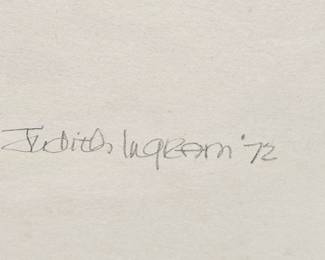 Judith Ingram '72